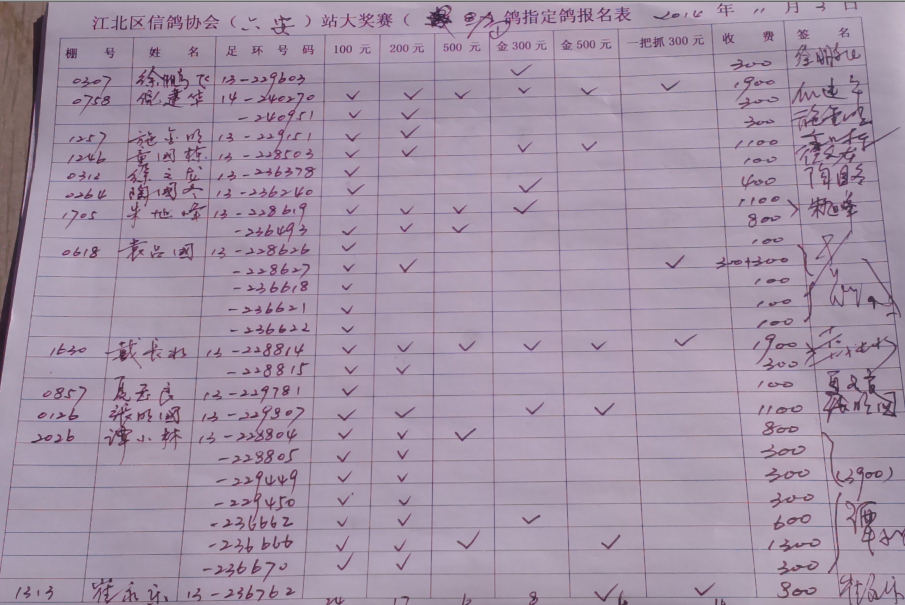 江北区信鸽协会（六安）站大奖赛（ 鸽指定鸽报名表 2014年 11月3日
棚号 姓名 足环号码 100元 200元 500元 金300元 金500元 一把抓300元 收费 签名
0307 徐鹏飞 13-229603 ✓ 300 徐鹏飞
0758 倪建华 14-240270 ✓ ✓ ✓ ✓ ✓ ✓ 1900
-240951 ✓ ✓ 300
1257 施 明 13-229151 ✓ ✓ 300
1246 童国栋 13-228503 ✓ ✓ ✓ ✓ 1100
0312 徐文龙 13-236378 ✓ 100
0264 陶国冬 13-236240 ✓ ✓ 400 陶国冬
1705 朱旭峰 13-228619 ✓ ✓ ✓ ✓ 1100 朱旭峰
-236493 ✓ ✓ ✓ 800
0618 袁品国 13-228626 ✓ 100
-228627 ✓ ✓ ✓ 300+300
-236618 ✓ 100
-236621 ✓ 100
-236622 ✓ 100
1630 戴长 13-228814 ✓ ✓ ✓ ✓ ✓ ✓ 1900
-228815 ✓ ✓ 300
0857 夏 良 13-229781 ✓ 100
0126 张明国 13-229807 ✓ ✓ ✓ ✓ 1100 张明国
2026 谭小林 13-228804 ✓ ✓ ✓ 800
-228805 ✓ ✓ 300
-229449 ✓ ✓ 300 (3900)
-229450 ✓ ✓ 300
-236662 ✓ ✓ ✓ 600 谭
-236666 ✓ ✓ ✓ ✓ 1300
-236670 ✓ ✓ 300
1313 崔永乐 13-236762 ✓ ✓ 800 崔永乐